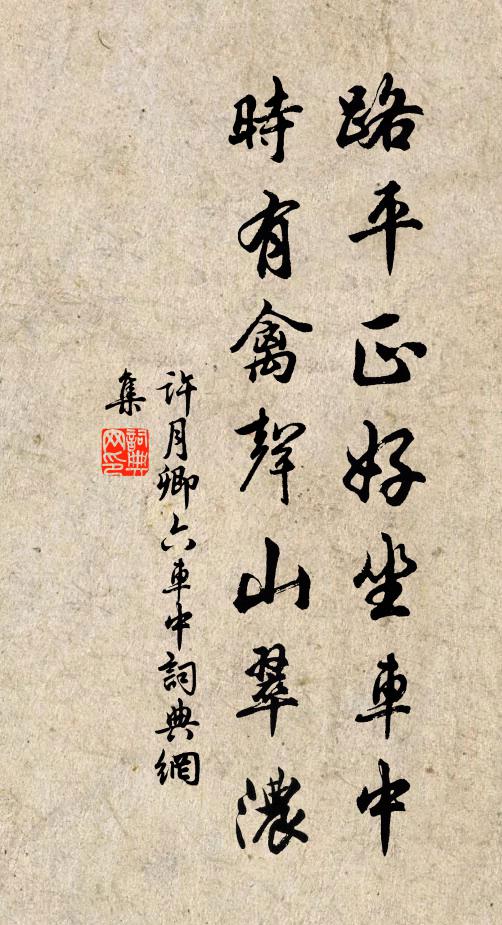 路平正好坐車中
時有禽聲山翠濃
許月卿六車中詞典網
集
詞典網印